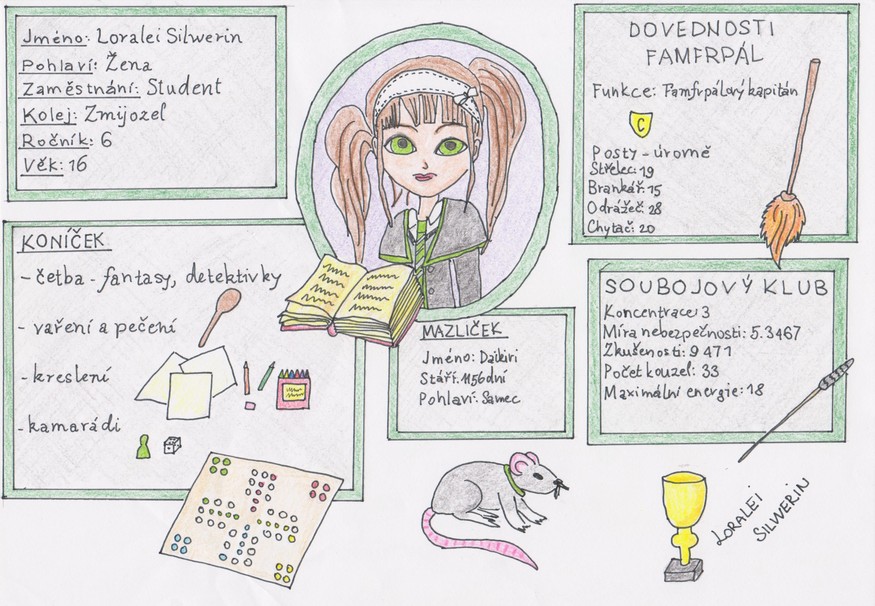 Jméno: Loralei Silwerin
Pohlaví: Žena
Zaměstnání: Student
Kolej: Zmijozel
Ročník: 6
Věk: 16
DOVEDNOSTI
FAMFRPÁL
Funkce: Famfrpálový kapitán
C
Posty - úrovně
Střelec: 19
Brankář: 15
Odrážeč: 28
Chytač: 20
KONÍČEK
- četba - fantasy, detektivky
- vaření a pečení
- kreslení
- kamarádi
MAZLÍČEK
Jméno: Daikiri
Stáří: 1156 dní
Pohlaví: Samec
SOUBOJOVÝ KLUB
Koncentrace: 3
Míra nebezpečnosti: 5.3467
Zkušenosti: 9 471
Počet kouzel: 33
Maximální energie: 18
LORALEI
SILWERIN